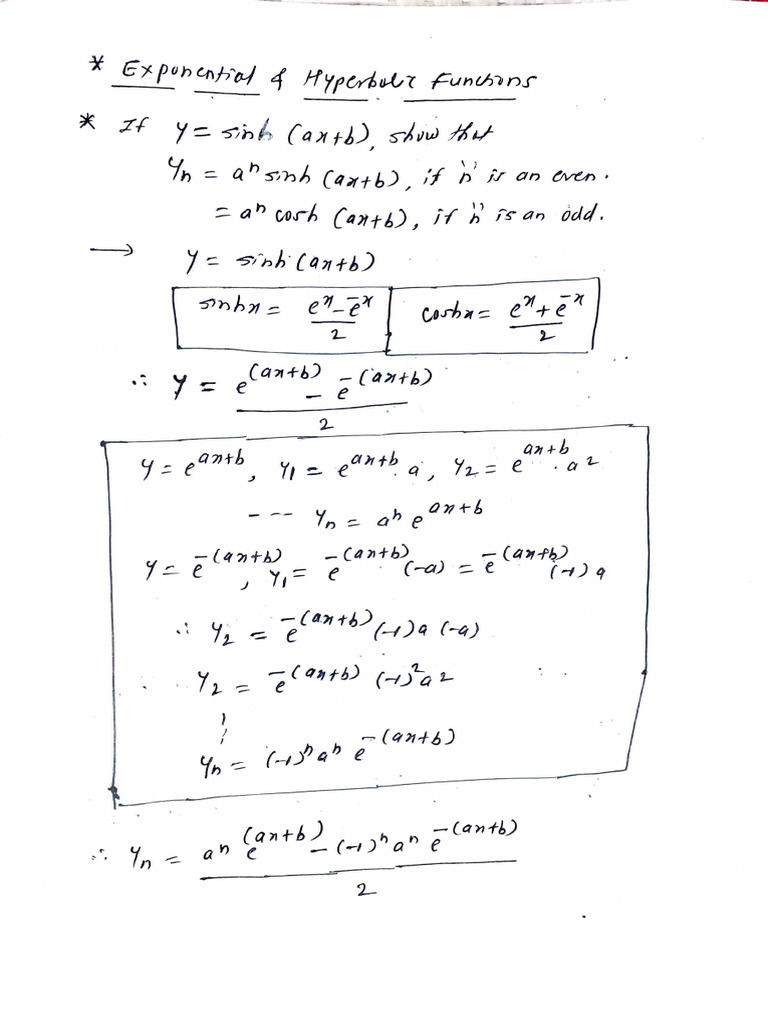 * Exponential & Hyperbolic Functions
* If y = sinh (ax+b), show that
yₙ = aⁿ sinh (ax+b), if 'n' is an even.
= aⁿ cosh (ax+b), if 'n' is an odd.
→ y = sinh (ax+b)
sinhx = (eˣ - e⁻ˣ)/2 coshx = (eˣ + e⁻ˣ)/2
∴ y = (e^(ax+b) - e^-(ax+b))/2
y = e^ax+b, y₁ = e^ax+b . a, y₂ = e^ax+b . a²
--- yₙ = aⁿ e^ax+b
y = e^-(ax+b), y₁ = e^-(ax+b) (-a) = e^-(ax+b) (-1) a
∴ y₂ = e^-(ax+b) (-1) a (-a)
y₂ = e^-(ax+b) (-1)² a²
⋮
yₙ = (-1)ⁿ aⁿ e^-(ax+b)
∴ yₙ = (aⁿ e^(ax+b) - (-1)ⁿ aⁿ e^-(ax+b))/2